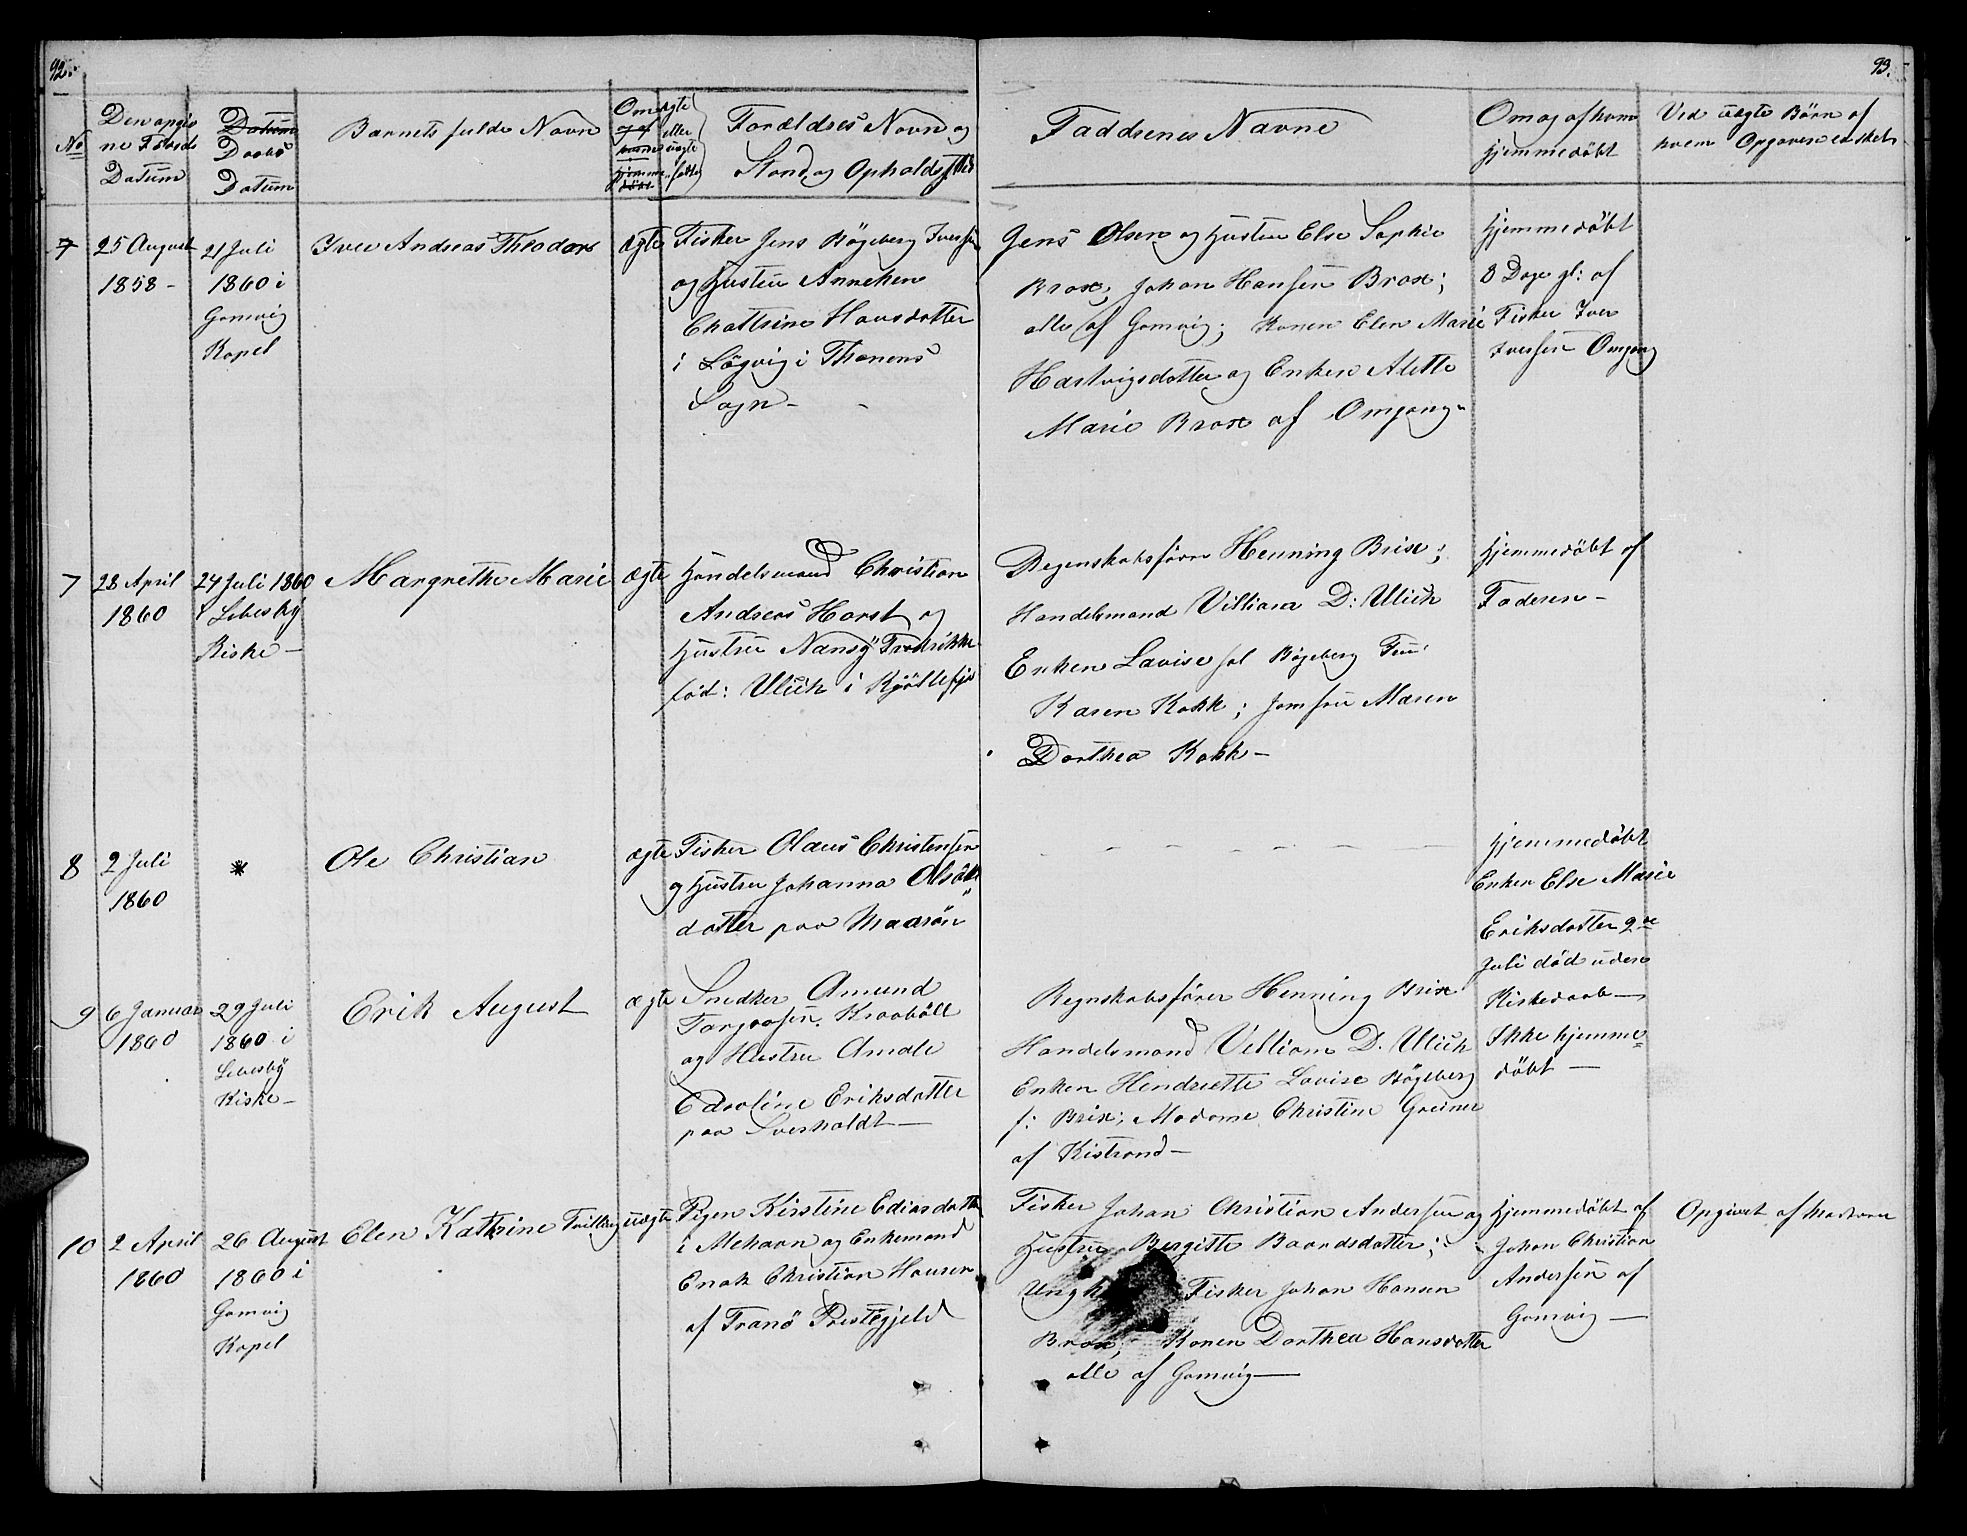 92.
93.
No
Den angivne Fødsels Datum
Daabs Datum
Barnets fulde Navn
Om ægte eller uægte født
Forældres Navn og Stand, og Opholdssted
Faddernes Navne
Om og af hvem hjemmedöbt
Ved uægte Börn af hvem Opgaven er skeet
7
25 August
1858 -
21 Juli
1860 i
Gamvig
Kapel
Iver Andreas Theodor
ægte
Fisker Jens Bögeberg Iversen
og Hustru Anneken
Chattrine Hansdotter
i Lögvig i Thanens
Sogn -
Jens Olsen og Hustru Else Sophie
Brox; Johan Hansen Brox;
alle af Gamvig; Konen Elen Marie
Hartvigsdotter og Enken Alette
Marie Brox af Omgang -
Hjemmedöbt
8 Dage gl: af
Fisker Iver
Iversen Omgang
7
28 April
1860
24 Juli 1860
i Lebesby
Kirke -
Margrethe Marie
ægte
Handelsmand Christian
Andreas Horst og
Hustru Nansÿ Fredrikke
föd: Ulich i Kjöllefjor
Regenskabsförer Henning Brix;
Handelsmand Villiam D: Ulich
Enken Lavise Bögeberg
Karen Kokk; Jomfru Maren
Dorthea Kokk -
Hjemmedöbt af
Faderen -
8
2 Juli
1860
*
Ole Christian
ægte
Fisker Olaus Christensen
og Hustru Johanna
dotter paa Maarön
Hjemmedöbt
Enken Else Marie
Eriksdotter 9de
Juli död uden
Kirkedaab -
9
6 Januar
1860
29 Juli
1860 i
Lebesbÿ
Kirke -
Erik August
ægte
Snedker Amund
Kraaböll
og Hustru Amale
Edvoline Eriksdotter
paa Sverholdt -
Regnskabsförer Henning Brix
Handelsmand Villiam D. Ulich
Enken Hendriette Lovise Bögeberg
f: Brix; Madame Christine Greiner
af Kistrand -
Ikke hjemme=
döbt -
10
2 April
1860
26 August
1860 i
Gamvig
Kapel
Elen Kathrine Tvilling
uægte
Pigen Kirstine
i Mehavn og Enkemand
Enok Christian Hansen
af Tranö Prestegjeld
Fisker Johan Christian Andersen og
Hustru Bergitte Baardsdotter;
Fisker Johan Hansen
Brox; Konen Dorthea Hansdotter
alle af Gamvig -
Hjemmedöbt af
Johan Christian
Andersen af
Gamvig -
Opgivet af Moderen